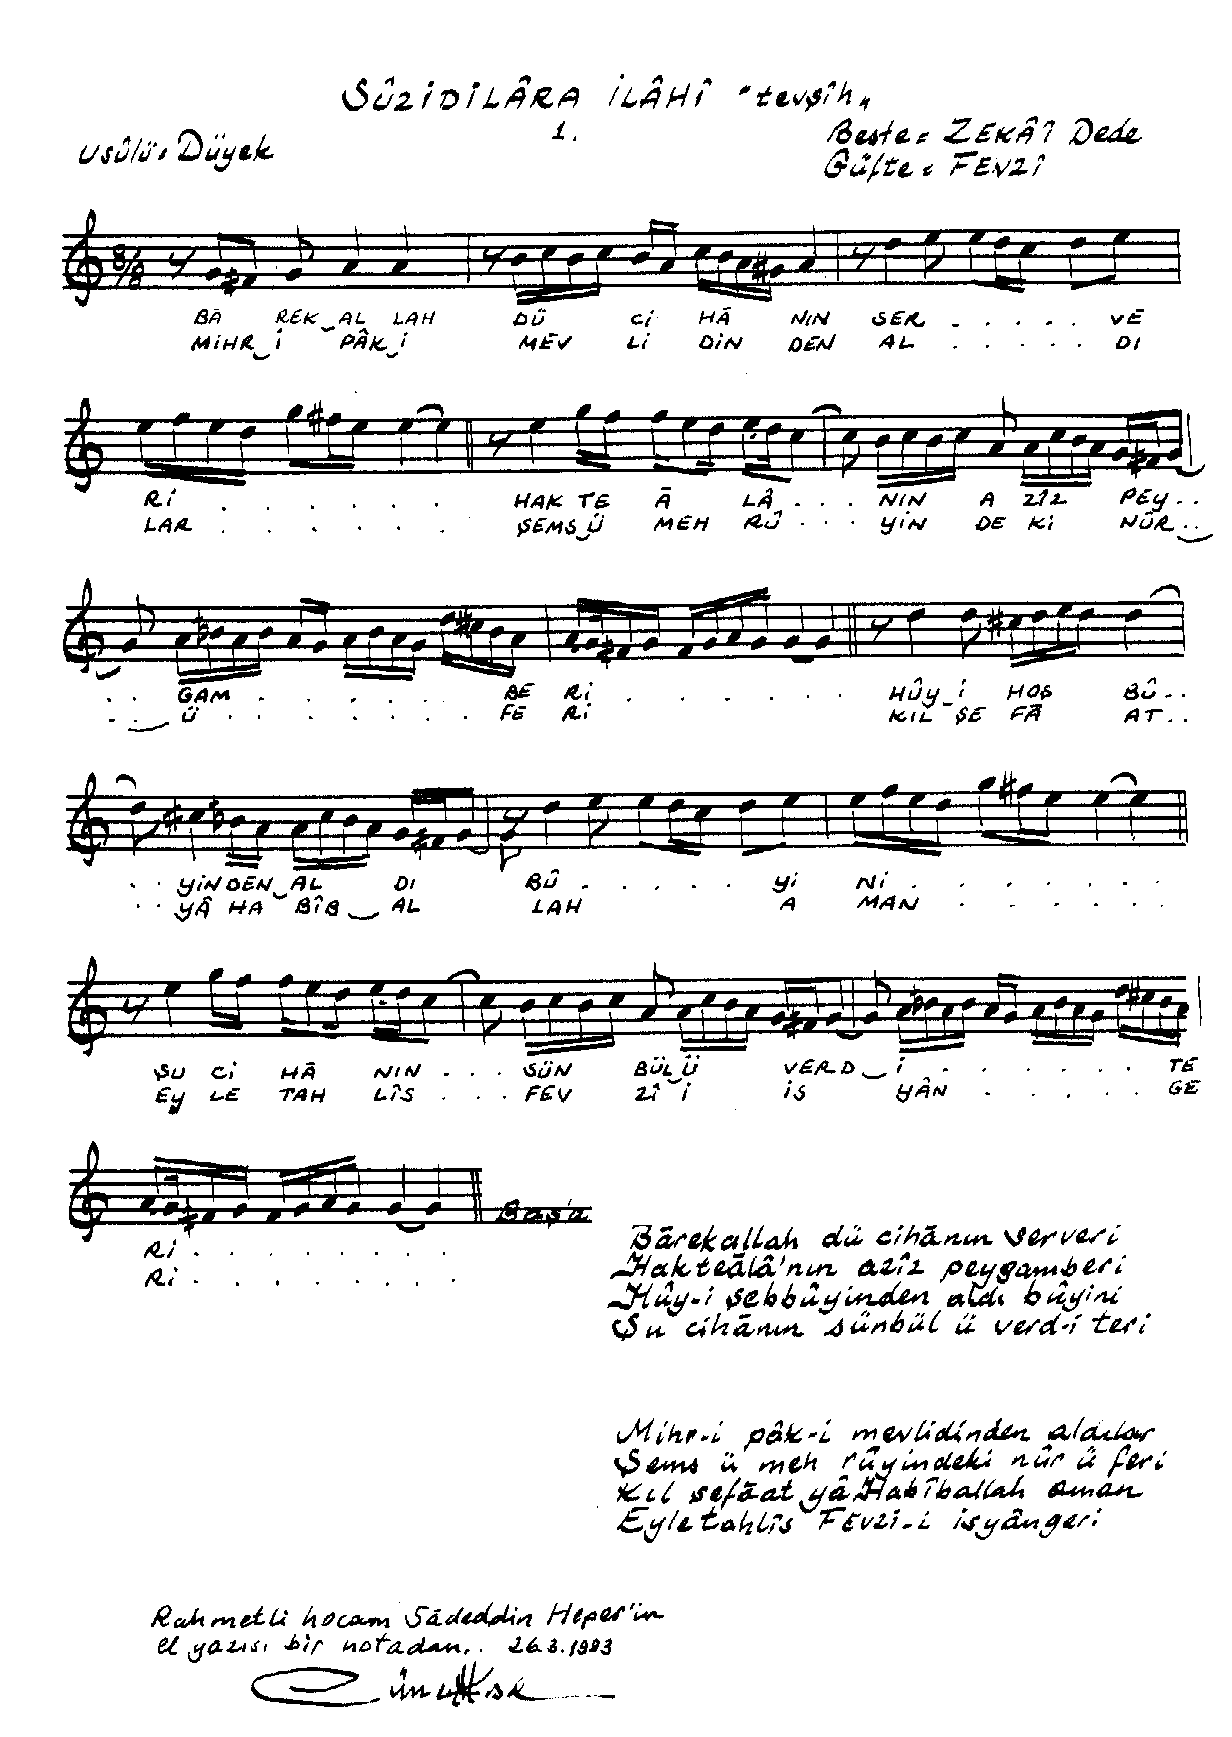 SÛZİDİLÂRA İLÂHÎ "tevşîh"
1.
Usûlü: Düyek
Beste: ZEKÂÎ Dede
Gûfte: FEVZÎ
8/8
BÂ REK_AL LAH DÜ Cİ HÂ NIN SER . . . . . VE
MİHR_İ PÂK_İ MEV Lİ DİN DEN AL . . . . . DI
Rİ . . . . . . HAK TE Â LÂ . . . NIN A ZÎZ PEY . .
LAR . . . . . . ŞEMS_Ü MEH RÛ . . . YİN DE Kİ NÛR . .
. . GAM . . . . . . BE Rİ . . . . . . HÛY_İ HOŞ BÛ . .
. . Ü . . . . . . FE Rİ KIL_ŞE FÂ AT . .
. . YİNDEN_AL DI BÛ . . . . . Yİ Nİ . . . . . .
. . YÂ HA BÎB_AL LAH A MAN . . . . . .
ŞU Cİ HÂ NIN . . . SÜN BÜL_Ü VERD_İ . . . . . . TE
EY LE TAH LÎS . . . FEV ZÎ İ İS YÂN . . . . . GE
Rİ . . . . . . .
Rİ . . . . . . .
Başa
Bârekallah dü cihânın serveri
Hakteâlâ'nın azîz peygamberi
Hûy-i şebbûyinden aldı bûyini
Şu cihânın sünbül ü verd-i teri
Mihr-i pâk-i mevlidinden aldılar
Şems ü meh rûyindeki nûr ü feri
Kıl şefâat yâ Habîballah aman
Eyle tahlîs FEVZİ-i isyângeri
Rahmetli hocam Sâdeddin Heper'in
el yazısı bir notadan.. 26.3.1983